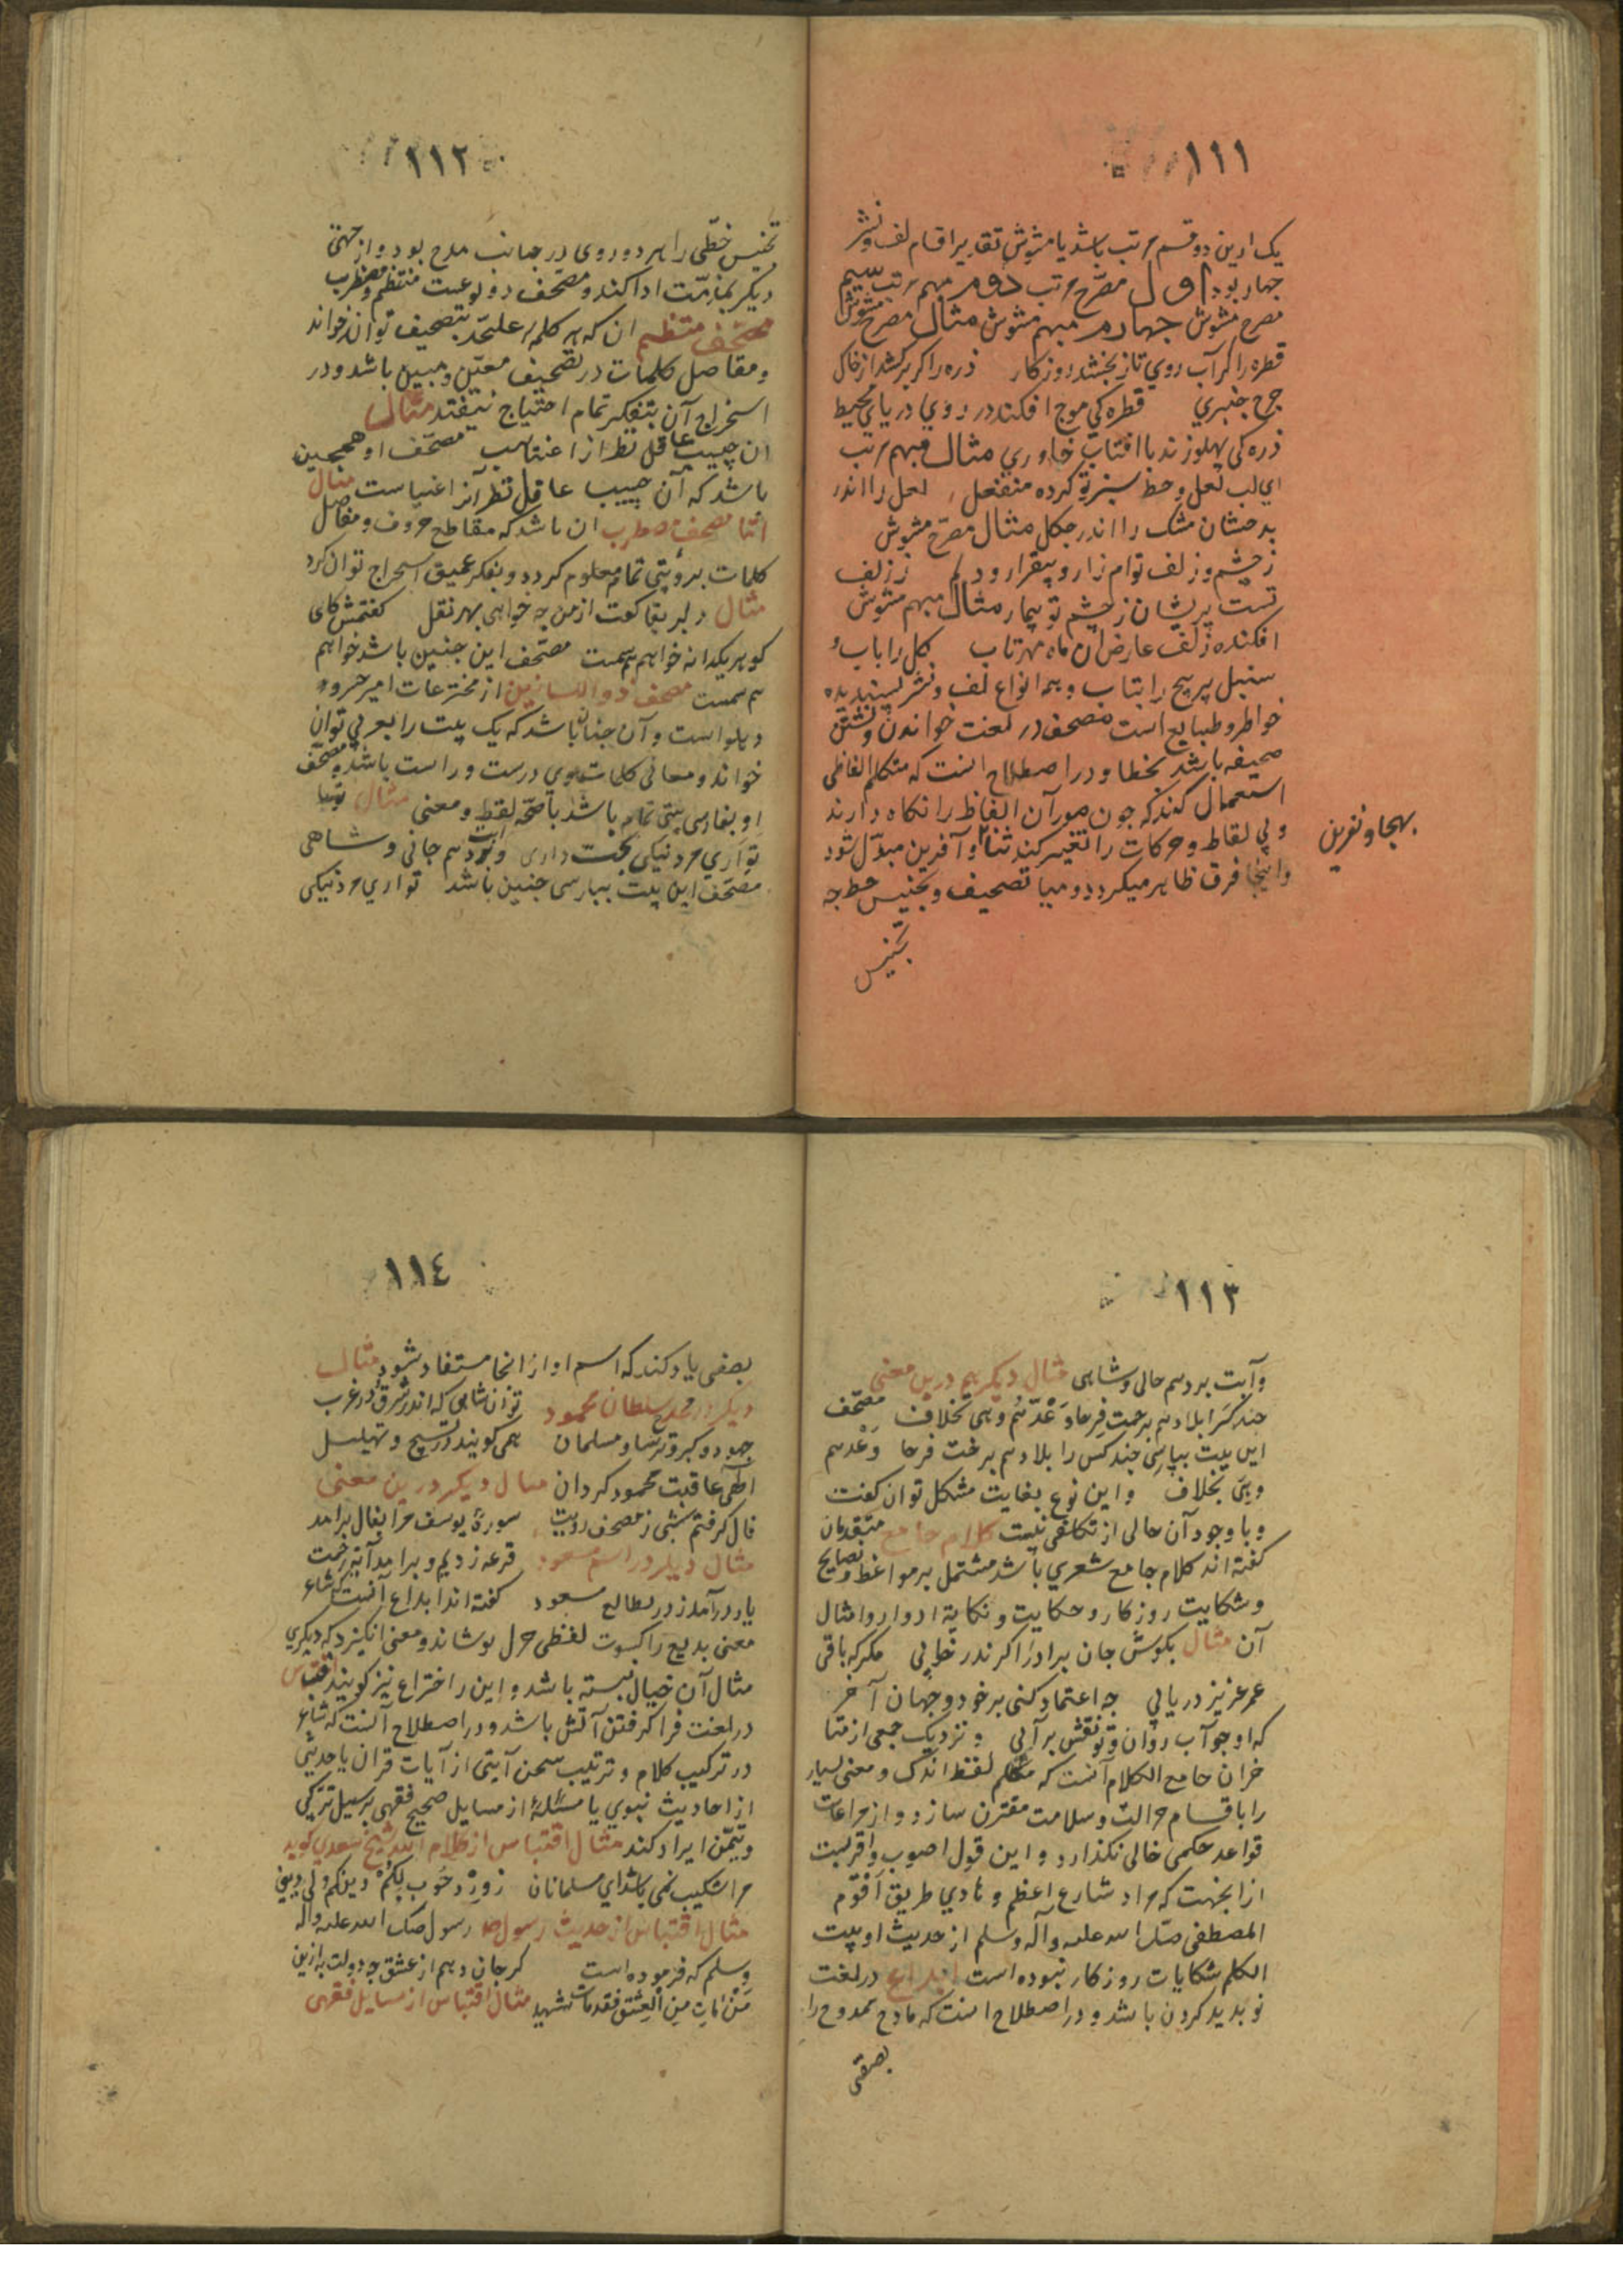 ١١١
یک ازین دو قسم مرتب باشد یا مشوش تقدیر اقسام لف و نشر
جهار بود اول مصرح مرتب دوم مبهم مرتب سیم
مصرح مشوش جهارم مبهم مشوش مثال مصرح مشوش
قطره را کر آب روي تاز بخشد روزکار ذره را کر برکشد از خاک
جرخ جنبري قطره کی موج افکند در روي درياي محیط
ذره کی پهلو زند با افتاب خاوري مثال مبهم مرتب
اي لب لعل و خط سبز تو کرده منفعل لعل را اندر
بدخشان مشک را اندر جکل مثال مصرح مشوش
ز چشم و زلف توام زار و بیقرار و دلم ز زلف
تست پریشان ز چشم تو بیمار مثال مبهم مشوش
افکنده ز لف عارض آن ماه مهرتاب کل را باب و
سنبل پر پیچ را بتاب و همه انواع لف و نشر پسندیده
خواطر و طبایع است مصحف در لغت خواندن و نبشتن
صحیفه باشد بخطا و در اصطلاح انست که متکلم الفاظی
استعمال کند که جون صور آن الفاظ را نکاه دارند
و لی نقاط و حرکات را تغییر کنند ثنا و آفرین مبدل شود
بهجا و نفرین
و اینجا فرق ظاهر میکردد و میا تصحیف و تجنیس خط جه
تجنیس
١١٢
تجنیس خطی را هر دو روی در جانب مدح بود و از جهتی
دیکر بمذمت ادا کند و مصحف دو نوعست منتظم و مضطرب
مصحف منتظم ان که هر کلمه علیحد بتصحیف توان خواند
و مفاصل کلمات در تصحیف معین و مبین باشد و در
استخراج آن بتفکر تمام احتیاج نیفتد مثال
ان حبیب عاقل نظر از اغنیاست مصحف او همجنین
باشد که آن جیب عاقل نظر آنز اغنیاست مثال
اما مصحف مضطرب ان باشد که مقاطع حروف و مفاصل
کلمات برؤیتی تمام معلوم کردد و بفکر عمیق استخراج توان کرد
مثال دلبر بقا کفت از من جه خواهی بهر نقل کفتمش کای
کوهر یکدانه خواهم سمت مصحف این جنین باشد خواهم
سمست مصحف ذو اللسانین از مخترعات امیر خسرو
دهلو است و آن جنان باشد که یک بیت را بعربی توان
خواند و معانی کلمات وي درست و راست باشد و مصحف
او بفارسی بیتی تمام باشد با صحه لفظ و معنی مثال
تواري مردنیکی بخت داری و بردهم جانی و شاهی
مصحف این بیت بپارسی جنین باشد تواري مردنیکی
١١٣
و آبت بردهم حالی و شاهی مثال دیکر هم درین معنی
جند کسرا بلا دهم برحمت فرحا و عدتهم وهی بخلاف مصحف
این بیت بپارسی جند کس را بلا دهم برغت فرحا وعدهم
وهی بخلاف و این نوع بغایت مشکل توان کفت
و با وجود آن حالی از تکلفی نیست کلام جامع متقدمان
کفته اند کلام جامع شعري باشد مشتمل بر مواعظ و نصایح
و شکایت روزکار و حکایت و نکایة ادوار و امثال
آن مثال بکوش جان برادر اکر ندر خوابی مکر که باقی
عمر عزیز دریابی جه اعتماد کنی بر خود و جهان آخر
که او جو آب روان و تو نقش بر آبی و نزدیک جمعی از متا
خران جامع الکلام آنست که متکلم لفظ اندک و معنی بسیار
را باقسام جزالت و سلامت مقترن سازد و از مراعات
قواعد حکمی خالی نکذارد و این قول اصوب و اقربست
از انجهت که مراد شارع اعظم و هادي طریق اقوم
المصطفی صلی الله علیه وآله وسلم از حدیث اوتیت
الکلم شکایات روزکار نبوده است ابداع در لغت
نو بدید کردن باشد و در اصطلاح انست که مادح ممدوح را
بصفتی
١١٤
بصفتی یاد کند که اسم او از انجا مستفاد شود مثال
دیکر در مدح سلطان محمود تو آن شاهی که اندر شرق و در غرب
جهود و کبر و ترسا و مسلمان همی کویند در تسبیح و تهلیل
الهی عاقبت محمود کردان مثال دیکر درین معنی
فال کرفتم شبی ز مصحف رویت سورۀ یوسف مرا بفال برامد
مثال دیکر در اسم مسعود قرعه زدیم و برامد آیة رحمت
یار درآمد ز در بطالع مسعود کفته اند ابداع آنست که شاعر
معنی بدیع را کسوت لفظی جزل بوشاند و معنی انکیزد که دیکري
مثال آن خیال نبسته باشد و این را اختراع نیز کویند اقتباس
در لغت فرا کرفتن آتش باشد و در اصطلاح آنست که شاعر
در ترکیب کلام و ترتیب سخن آیتی از آیات قران یا حدیثی
از احادیث نبوي یا مسئلۀ از مسایل صحیح فقهی بر سبیل تبرکی
و تیمن ایراد کند مثال اقتباس از کلام الله شیخ سعدي کوید
مرا شکیب نمی باشد اي مسلمانان ز روي خوب لکم دینکم ولي دیني
مثال اقتباس از حدیث رسول رسول صلی الله علیه وآله
وسلم که فرموده است کر جان دهم از عشق جه دولت به ازین
من مات من العشق فقد مات شهید مثال اقتباس از مسایل فقهی